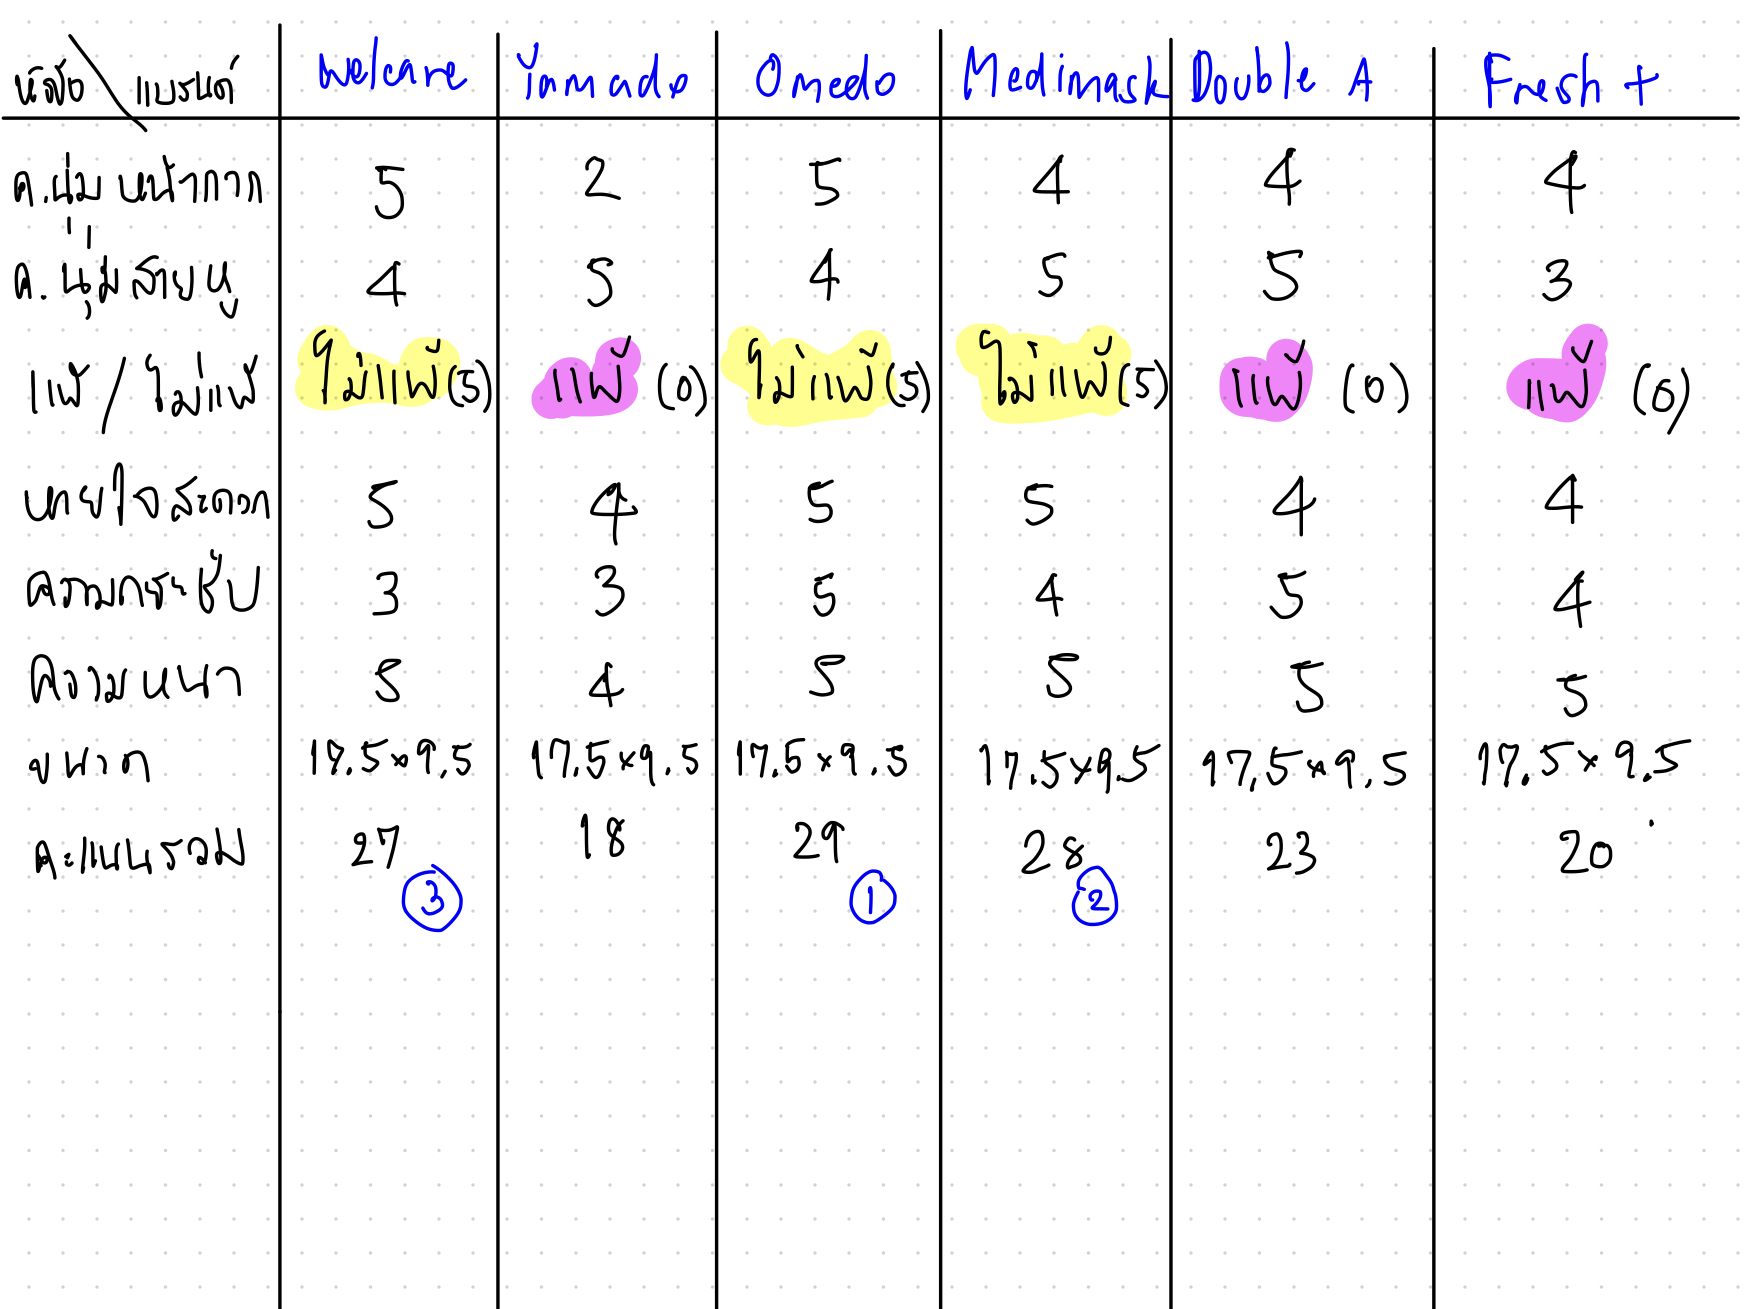 หัวข้อ \ แบรนด์ Welcare Yamado Omedo Medimask Double A Fresh +
ค.นุ่ม หน้ากาก 5 2 5 4 4 4
ค.นุ่มสายหู 4 5 4 5 5 3
แพ้ / ไม่แพ้ ไม่แพ้ (5) แพ้ (0) ไม่แพ้ (5) ไม่แพ้ (5) แพ้ (0) แพ้ (0)
หายใจสะดวก 5 4 5 5 4 4
ความกระชับ 3 3 5 4 5 4
ความหนา 5 4 5 5 5 5
ขนาด 17.5×9.5 17.5×9.5 17.5×9.5 17.5×9.5 17.5×9.5 17.5×9.5
คะแนนรวม 27 18 29 28 23 20
3 1 2